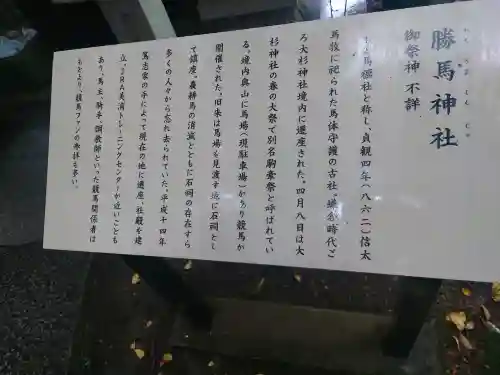 勝馬神社
かち うま じん じゃ
御祭神 不詳
馬櫪社と称し、貞観四年(八六二)信太
馬牧に祀られた馬体守護の古社。鎌倉時代ご
ろ大杉神社境内に遷座された。四月八日は大
杉神社の春の大祭で別名駒牽祭と呼ばれてい
る。境内奥山に馬場(現駐車場)があり競馬が
開催された。旧来は馬場を見渡す地に石祠とし
て鎮座。農耕馬の消滅とともに石祠の存在すら
多くの人々から忘れ去られていた。平成十四年
篤志家の手によって現在の地に遷座、社殿を建
立。JRA美浦トレーニングセンターが近いことも
あり、馬主・騎手・調教師といった競馬関係者は
もとより、競馬ファンの参拝も多い。